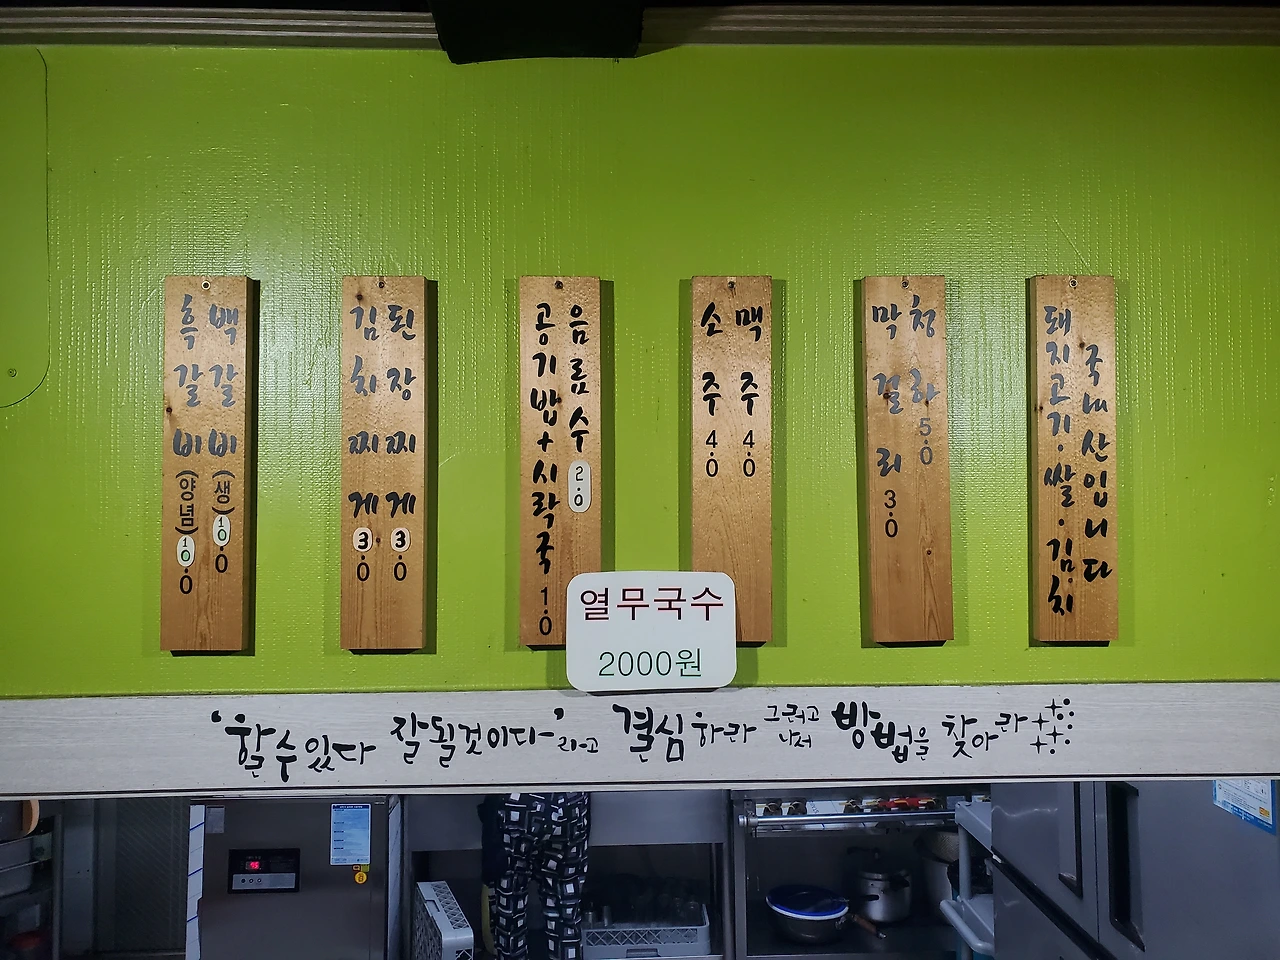 흑갈비(양념)10.0
백갈비(생)10.0
김치찌게3.0
된장찌게3.0
공기밥+시락국1.0
음료수2.0
소주4.0
맥주4.0
막걸리3.0
청하5.0
돼지고기·쌀·김치
국내산입니다
열무국수
2000원
'할수있다 잘될것이다'라고 결심하라 그러고나서 방법을 찾아라